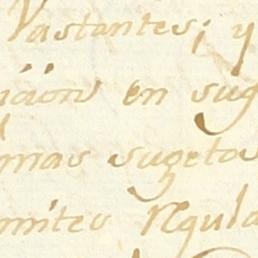 Vastantes; y
ncion en sug
mas sugetos
mites Regula